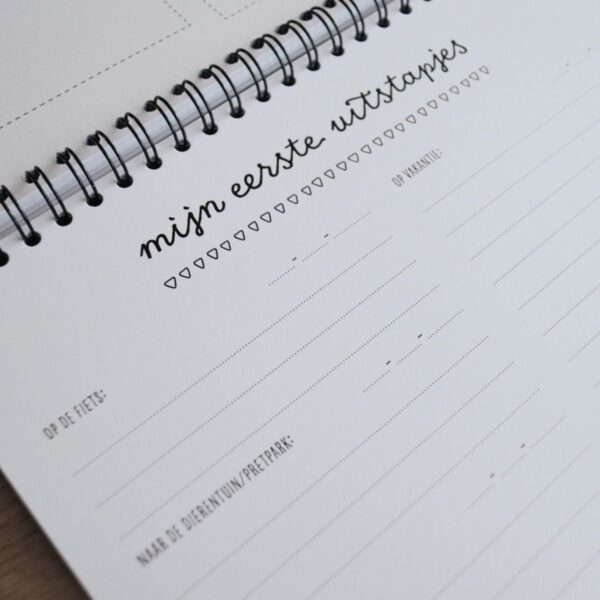 mijn eerste uitstapjes
OP DE FIETS:
NAAR DE DIERENTUIN/PRETPARK:
OP VAKANTIE: